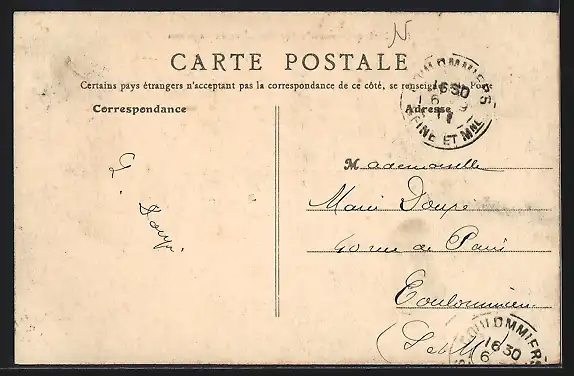 N
CARTE POSTALE
Certains pays étrangers n'acceptant pas la correspondance de ce côté, se renseigner à la Poste
Correspondance
Adresse
COULOMMIERS
16 30
6 9
SEINE ET MNE
Mademoiselle
Marie Doupé
40 rue de Paris
Coulommiers
(S et M)
COULOMMIERS
16 30
6